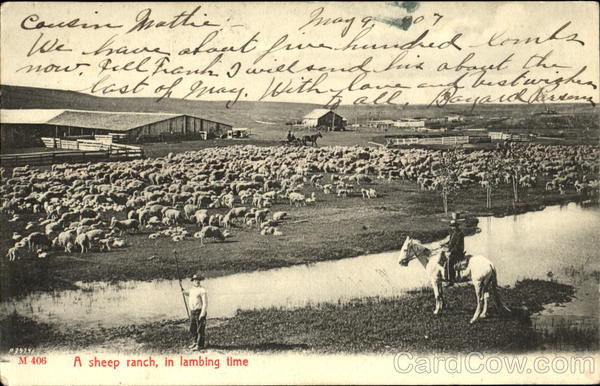 Cousin Mattie May 9 07
We have about five hundred lambs
now. Tell Frank I will send his about the
last of May. With love and best wishes
to all Bayard
M 406 A sheep ranch, in lambing time
CardCow.com